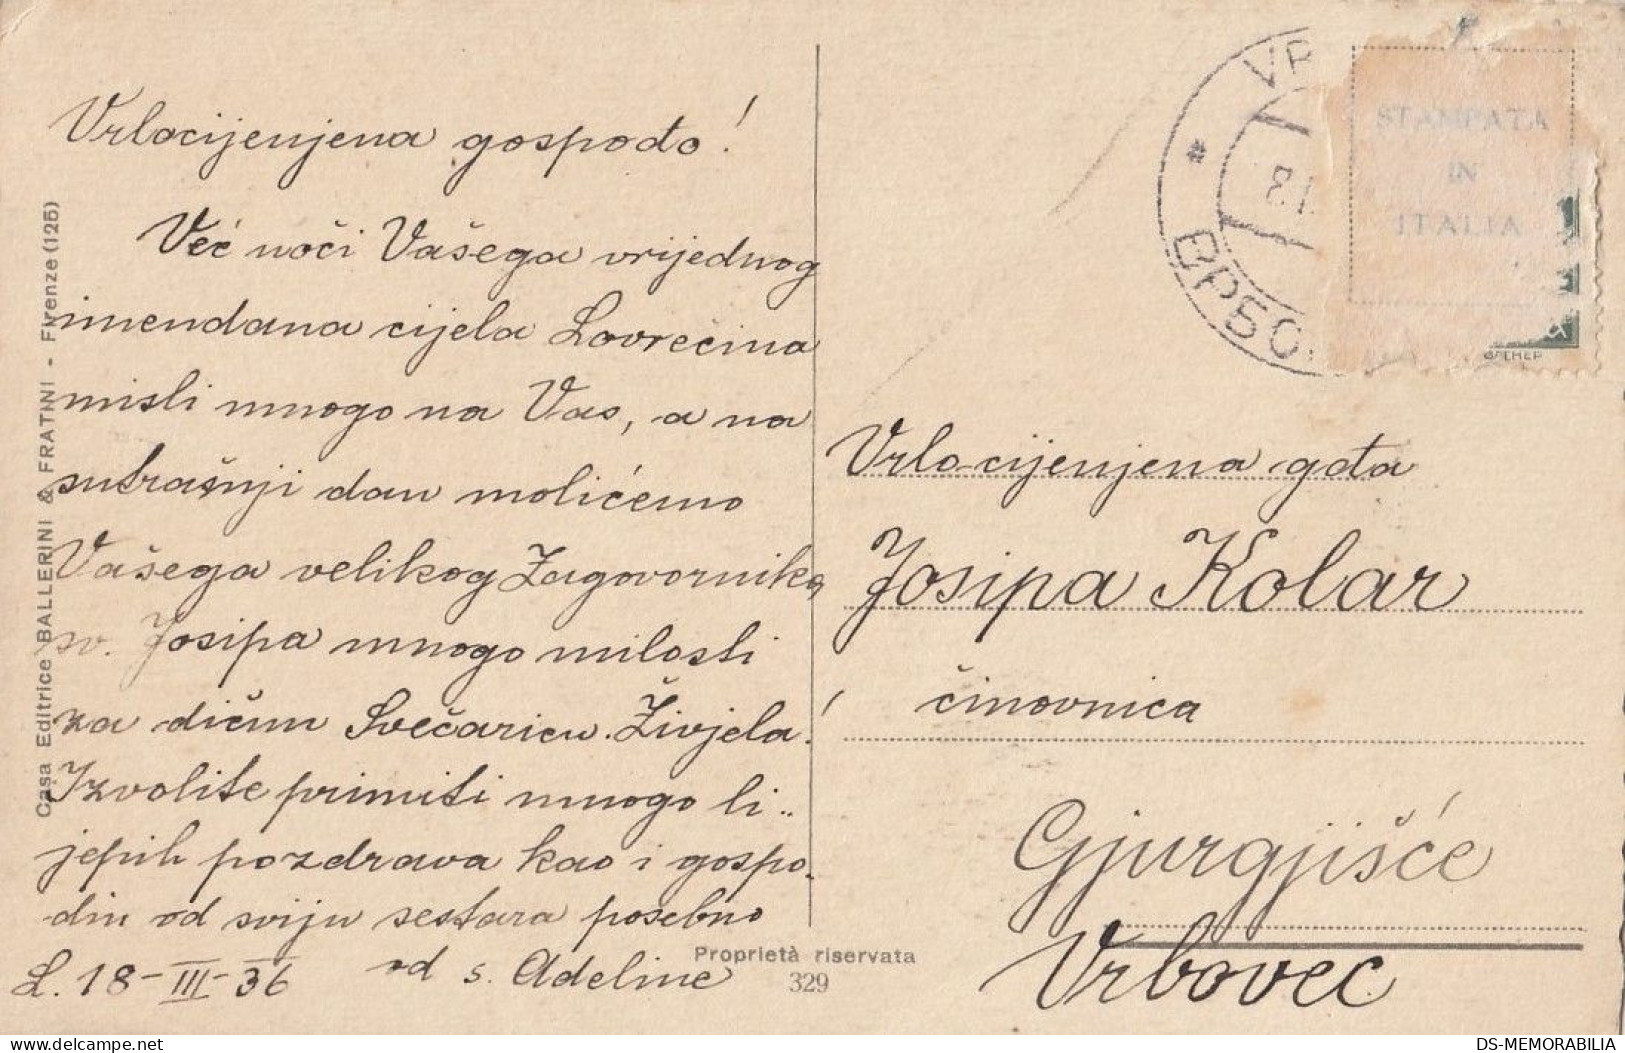 Vrlocijenjena gospođo!
Već uoči Vašega vrijednog
imendana cijela Lovrečina
misli mnogo na Vas, a na
sutrašnji dan molićemo
Vašega velikog Zagovornika
sv. Josipa mnogo milosti
za dičnu Svečaricu. Živjela!
Izvolite primiti mnogo li-
jepih pozdrava kao i gospo-
din od sviju sestara posebno
od s. Adeline
L. 18-III-36
Casa Editrice BALLERINI & FRATINI - Firenze (125)
Proprietà riservata
329
VR
ВРБО
STAMPATA
IN
ITALIA
Vrlocijenjena gđa
Josipa Kolar
činovnica
Gjurgjišće
Vrbovec
DS-MEMORABILIA